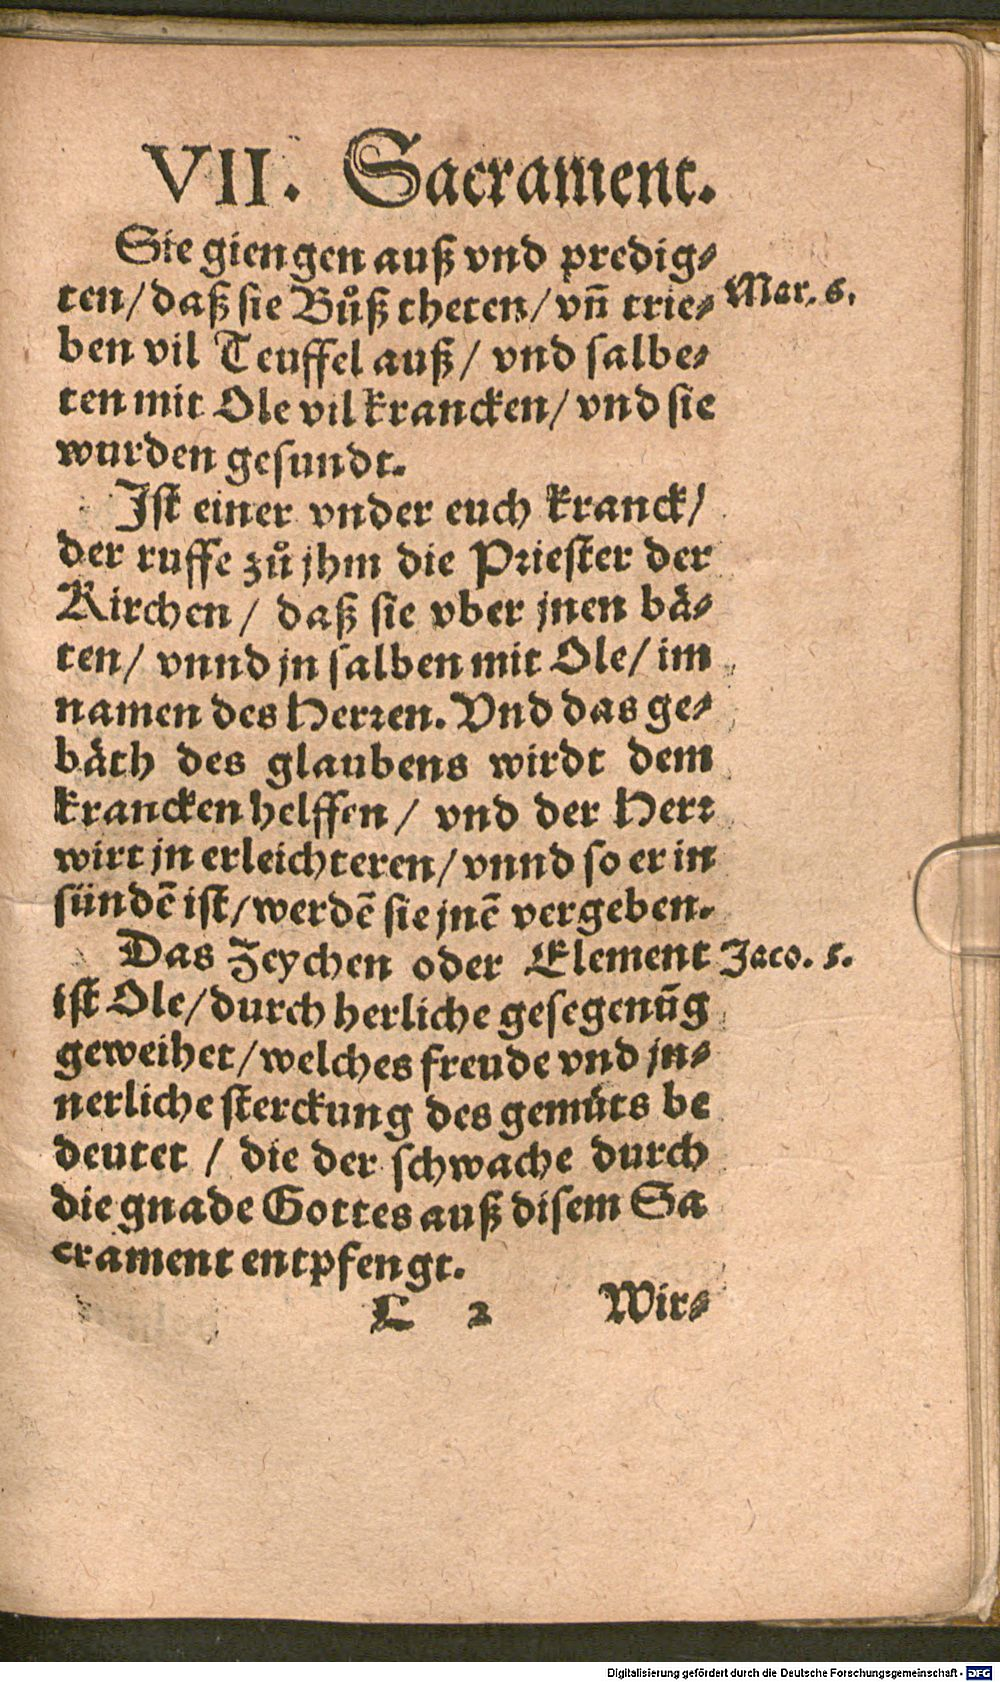 VII. Sacrament.
Sie giengen auß vnd predig⸗
ten/ daß sie Bůß theten/ vñ trie⸗
Mar. 6.
ben vil Teuffel auß/ vnd salbe⸗
ten mit Ole vil krancken/ vnd sie
wurden gesundt.
Ist einer vnder euch kranck/
der ruffe zů jhm die Priester der
Kirchen/ daß sie vber jnen bä⸗
ten/ vnnd jn salben mit Ole/ im
namen des Herren. Vnd das ge⸗
bäth des glaubens wirdt dem
krancken helffen/ vnd der Herr
wirt jn erleichteren/ vnnd so er in
sündē ist/ werdē sie jnē vergeben.
Das Zeychen oder Element
Jaco. 5.
ist Ole/ durch herliche gesegenūg
geweihet/ welches freude vnd jn⸗
nerliche sterckung des gemüts be
deutet/ die der schwache durch
die gnade Gottes auß disem Sa
crament entpfengt.
L 2 Wir⸗
Digitalisierung gefördert durch die Deutsche Forschungsgemeinschaft - DFG